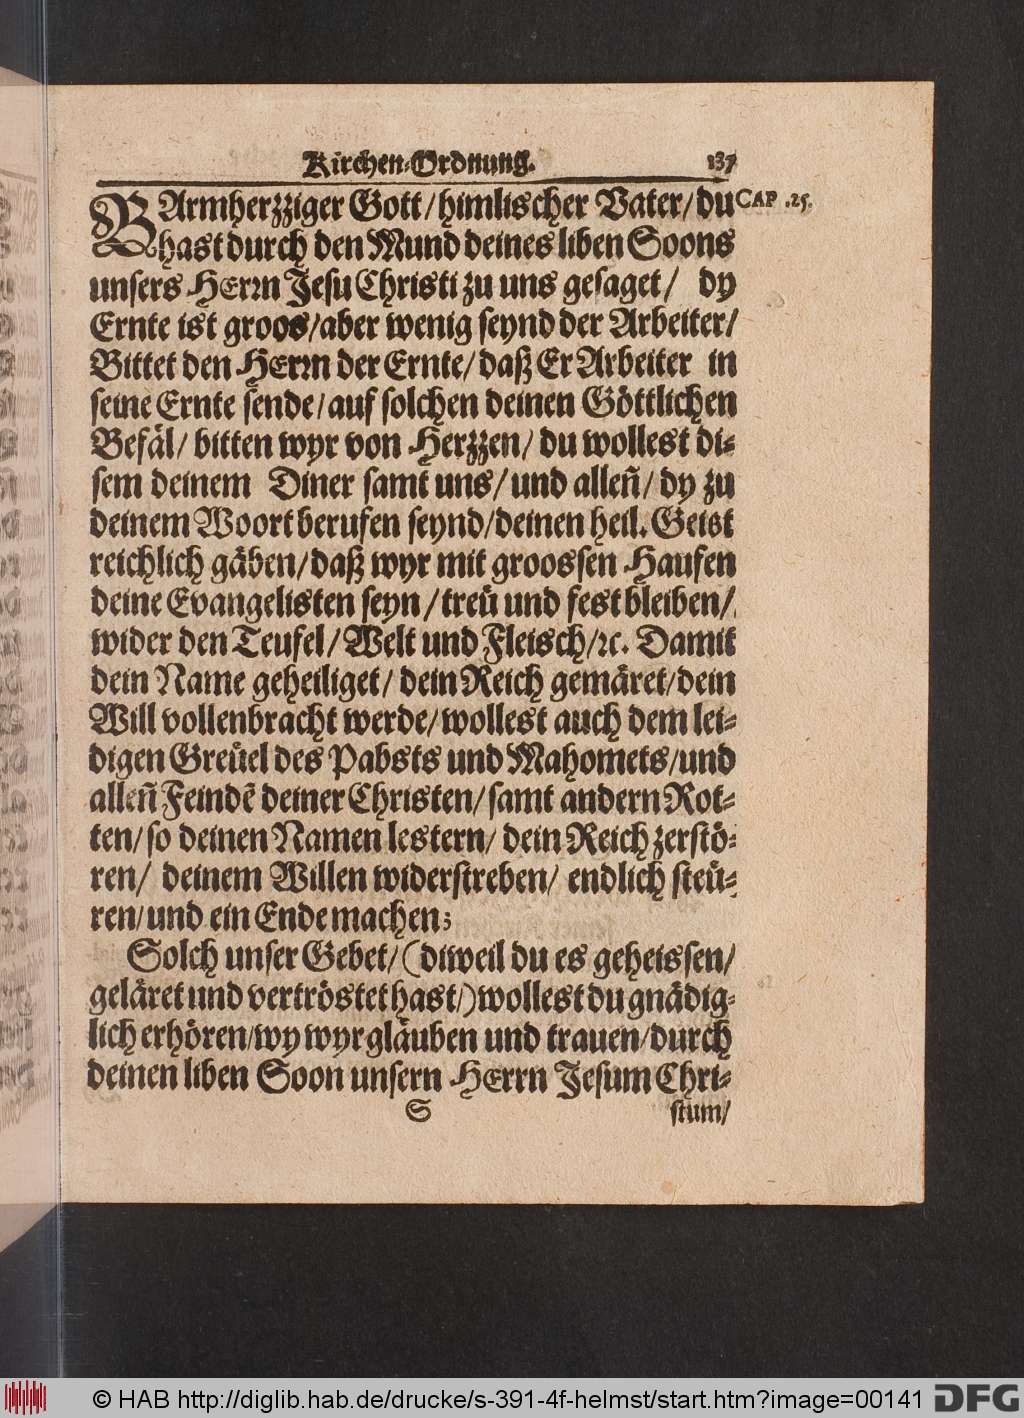 Kirchen-Ordnung. 137
BArmherzziger Gott/ himlischer Vater/ du CAP. 25.
hast durch den Mund deines liben Soons
unsers HErrn Jesu Christi zu uns gesaget/ dy
Ernte ist groos/ aber wenig seynd der Arbeiter/
Bittet den HErrn der Ernte/ daß Er Arbeiter in
seine Ernte sende/ auf solchen deinen Göttlichen
Befäl/ bitten wyr von Herzzen/ du wollest di-
sem deinem Diner samt uns/ und alleñ/ dy zu
deinem Woort berufen seynd/ deinen heil. Geist
reichlich gäben/ daß wyr mit groossen Haufen
deine Evangelisten seyn/ treü und fest bleiben/
wider den Teufel/ Welt und Fleisch/ ꝛc. Damit
dein Name geheiliget/ dein Reich gemäret/ dein
Will vollenbracht werde/ wollest auch dem lei-
digen Greüel des Pabsts und Mahomets/ und
alleñ Feindẽ deiner Christen/ samt andern Rot-
ten/ so deinen Namen lestern/ dein Reich zerstö-
ren/ deinem Willen widerstreben/ endlich steü-
ren/ und ein Ende machen;
Solch unser Gebet/ (ditweil du es geheissen/
geläret und vertröstet hast/) wollest du gnädig-
lich erhören/ wy wyr gläuben und trauen/ durch
deinen liben Soon unsern HErrn Jesum Chri-
S stum/
© HAB http://diglib.hab.de/drucke/s-391-4f-helmst/start.htm?image=00141 DFG